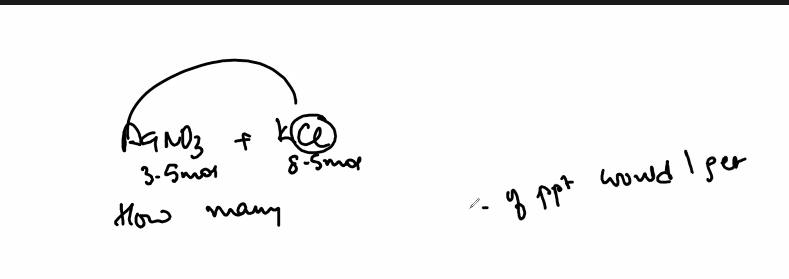 AgNO3 + KCl
3.5mol 8.5mol
How many - of ppt would I get